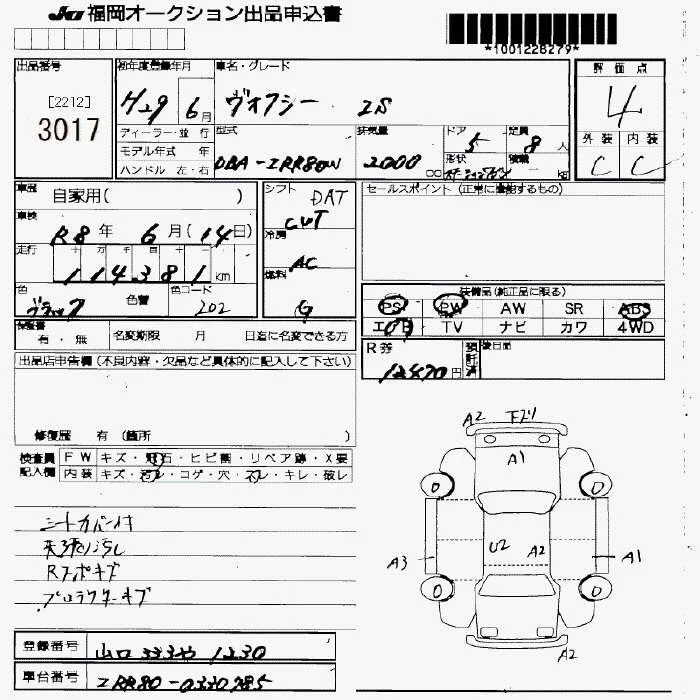 JU 福岡オークション出品申込書
*1001228279*
出品番号
[2212]
3017
初年度登録年月
H29 6月
車名・グレード
ヴォクシー ZS
評価点
4
外装 内装
C C
ディーラー・並行
モデル年式 年
ハンドル 左・右
型式
DBA-ZRR80W
排気量
2000
cc
ドア
5
定員
8人
形状
積載
kg
車歴
自家用( )
車検
R8年 6月(14日)
走行
十 万 千 百 十 一
114381km
色
ブラック
色替
色コード
202
シフト
DAT
CVT
冷房
AC
燃料
G
セールスポイント (正常に機能するもの)
装備品(純正品に限る)
PS PW AW SR ABS
エアB TV ナビ カワ 4WD
保証書
有・無
名変期限 月 日迄に名変できる方
R券
12470円
預託済
後日
出品店申告欄(不良内容・欠品など具体的に記入して下さい)
修復歴 有(箇所 )
検査員記入欄
FW キズ・飛石・ヒビ割・リペア跡・X要
内装 キズ・汚レ・コゲ・穴・スレ・キレ・破レ
シートカバー付
天張り汚レ
Rスポキズ
A2 下ズリ
A1
0 0
A3 U2 A2 A1
0 0
A2
登録番号
山口 333や 1230
車台番号
ZRR80-0330785